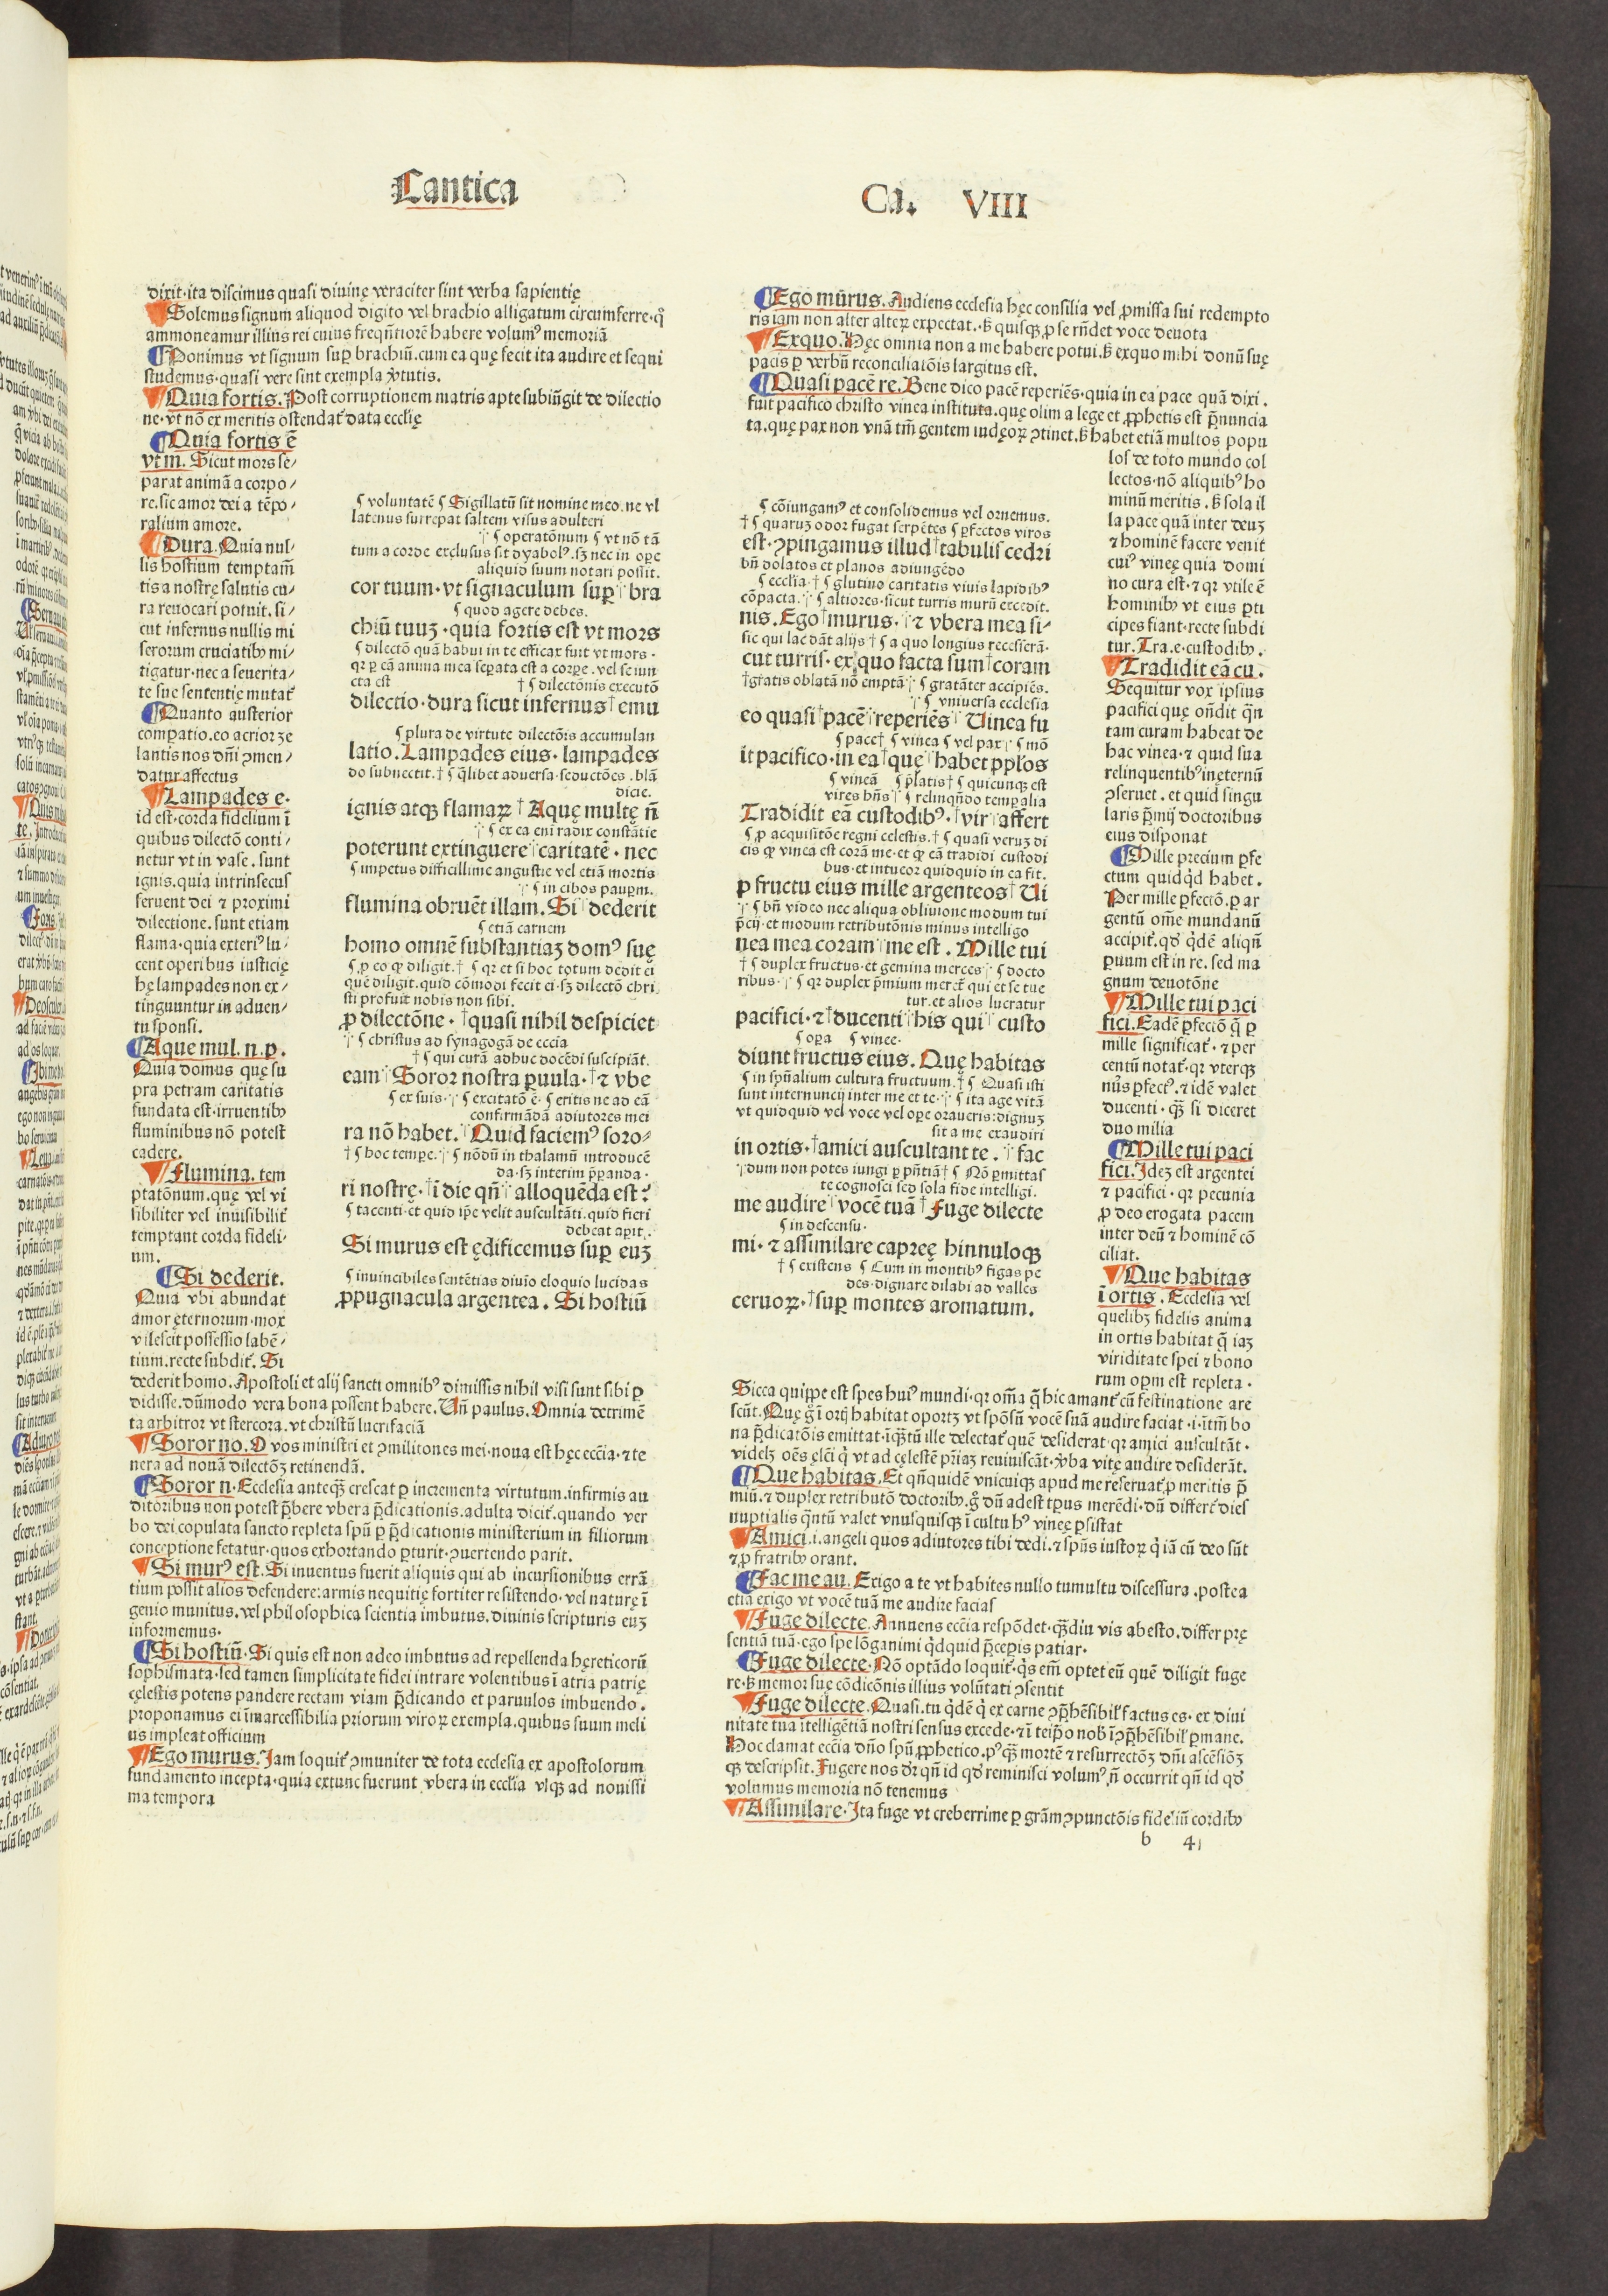 Cantica
Ca. VIII
dixit·ita discimus quasi diuinę veraciter sint verba sapientię
Solemus signum aliquod digito vel brachio alligatum circumferre·qͦ
ammoneamur illius rei cuius freqn̄tiorē habere volumꝰ memoriā
Ponimus vt signum suꝑ brachiū.cum ea quę fecit ita audire et sequi
studemus·quasi vere sint exempla v̓tutis.
Quia fortis. Post corruptionem matris apte subiūgit de dilectio
ne·vt nō ex meritis ostendat᷑ data eccl̄ię
Quia fortis ē
vt m. Sicut mors se/
parat animā a corpo/
re.sic amor dei a tēpo/
ralium amore.
Dura. Quia nul/
lis hostium temptam̄
tis a nostrę salutis cu/
ra reuocari potuit. si/
cut infernus nullis mi
serorum cruciatibꝫ mi/
tigatur·nec a seuerita/
te suę sententię mutat᷑
Quanto austerior
comꝑatio.eo acrior ze
lantis nos dn̄i ꝯmen/
datur affectus
Lampades e·
id est·corda fidelium ī
quibus dilectō conti/
netur vt in vase. sunt
ignis.quia intrinsecus
feruent dei ⁊ proximi
dilectione. sunt etiam
flama·quia exteriꝰ lu/
cent operibus iusticię
hę lampades non ex/
tinguuntur in aduen/
tu sponsi.
Aque mul. n. p.
Quia domus quę su
pra petram caritatis
fundata est·irruentibꝫ
fluminibus nō potest
cadere.
Flumina. tem
ptatōnum.quę vel vi
sibiliter vel inuisibilit᷑
temptant corda fideli/
um.
Si dederit.
Quia vbi abundat
amor ęternorum·mox
vilescit possessio labē/
tium.recte subdit᷑. Si
dederit homo. Apostoli et alij sancti omnibꝰ dimissis nihil visi sunt sibi ꝑ
didisse.dūmodo vera bona possent habere. Un̄ paulus. Omnia detrimē
ta arbitror vt stercora.vt christū lucrifaciā
Soror no. O vos ministri et ꝯmilitones mei·noua est hęc ecc̄ia·⁊ te
nera ad nouā dilectōꝫ retinendā.
Soror n·Ecclesia anteqꝫ crescat ꝑ incrementa virtutum.infirmis au
ditoribus non potest p̄bere vbera p̄dicationis.adulta dicit᷑.quando ver
bo dei copulata sancto repleta spū ꝑ p̄dicationis ministerium in filiorum
conceptione fetatur·quos exhortando ꝑturit·ꝯuertendo parit.
Si murꝰ est. Si inuentus fuerit aliquis qui ab incursionibus errā
tium possit alios defendere:armis nequitię fortiter resistendo·vel naturę ī
genio munitus.vel philosophica scientia imbutus.diuinis scripturis euꝫ
informemus·
Si hostiū·Si quis est non adeo imbutus ad repellenda hęreticorū
sophismata·sed tamen simplicitate fidei intrare volentibus ī atria patrię
cęlestis potens pandere rectam viam p̄dicando et paruulos imbuendo.
proponamus ei inarcessibilia priorum viroꝝ exempla.quibus suum meli
us impleat officium
Ego murus. Jam loquit᷑ ꝯmuniter de tota ecclesia ex apostolorum
fundamento incepta·quia extunc fuerunt vbera in eccl̄ia vsqꝫ ad nouissi
ma tempora
¶ voluntatē ¶ Sigillatū sit nomine meo.ne vl
latenus surrepat saltem visus adulteri
¶ operatōnum ¶ vt nō tā
tum a corde exclusus sit dyabolꝰ.sꝫ nec in oꝑe
aliquid suum notari possit.
cor tuum·vt signaculum suꝑ bra
¶ quod agere debes.
chiū tuuꝫ·quia fortis est vt mors
¶ dilectō quā habui in te efficax fuit vt mors·
qꝛ ꝑ eā anima mea seꝑata est a corꝑe·vel se iun
cta est † ¶ dilectōnis executō
dilectio·dura sicut infernus †emu
¶ plura de virtute dilectōis accumulan
latio. Lampades eius·lampades
do subnectit.† ¶ qͥlibet aduersa·seductōes.blā
dicie.
ignis atqꝫ flamaꝝ †Aquę multę n̄
¶ ex ea eni radix constātie
poterunt extinguere caritatē·nec
¶ impetus difficillime angustie vel etiā mortis
¶ in cibos pauꝑm.
flumina obruēt illam. Si dederit
¶ etiā carnem
homo omnē substantiaꝫ domꝰ suę
¶ ꝓ eo qꝙ diligit.† ¶ qꝛ et si hoc totum dedit ei
quē diligit.quid cōmodi fecit ei·sꝫ dilectō chri
sti profuit nobis non sibi.
ꝓ dilectōne·†quasi nihil despiciet
¶ christus ad synagogā de ecc̄ia
† ¶ qui curā adhuc docēdi suscipiāt.
eam Soror nostra ꝑuula·†⁊ vbe
¶ ex suis· ¶ excitatō ē·¶ eritis ne ad eā
confirmādā adiutores mei
ra nō habet. Quid faciemꝰ soro/
† ¶ hoc temꝑe· ¶ nōdū in thalamū introducē
da·sꝫ interim p̄ꝑanda·
ri nostrę·†ī die qn̄ alloquēda est?
¶ tacenti·et quid ip̄e velit auscultāti·quid fieri
debeat aꝑit.
Si murus est ędificemus suꝑ euꝫ
¶ inuincibiles sentētias diuio eloquio lucidas
ꝓpugnacula argentea. Si hostiū
Ego murus. Audiens ecclesia hęc consilia vel ꝓmissa sui redempto
ris iam non alter alteꝝ expectat.·sꝫ quisqꝫ ꝓ se rn̄det voce deuota
Exquo. Hęc omnia non a me habere potui.sꝫ exquo mihi donū suę
pacis ꝑ verbū reconciliatōis largitus est.
Quasi pacē re. Bene dico pacē reperiēs·quia in ea pace quā dixi.
fuit pacifico christo vinea instituta.quę olim a lege et ꝓphetis est p̄nuncia
ta.quę pax non vnā tm̄ gentem iudęoꝝ ꝯtinet.sꝫ habet etiā multos popu
los de toto mundo col
lectos·nō aliquibꝰ ho
minū meritis.sꝫ sola il
la pace quā inter deuꝫ
⁊ hominē facere venit
cuiꝰ vineę quia domi
no cura est·⁊ qꝛ vtile ē
hominibꝫ vt eius ꝑti
cipes fiant·recte subdi
tur. Tra.e·custodibꝫ.
Tradidit eā cu.
Sequitur vox ipsius
pacifici quę on̄dit qn̄
tam curam habeat de
hac vinea·⁊ quid sua
relinquentibꝰ in eternū
ꝯseruet.et quid singu
laris p̄mij doctoribus
eius disponat
Mille precium ꝑfe
ctum quidqͥd habet.
Per mille ꝑfectō.ꝑ ar
gentū om̄e mundanū
accipit᷑.qd̓ qͥdē aliqn̄
ꝑuum est in re.sed ma
gnum deuotōne
Mille tui paci
fici. Eadē ꝑfectō q̄ ꝑ
mille significat᷑·⁊ per
centū notat᷑·qꝛ vterqꝫ
nūs ꝑfectꝰ.⁊ idē valet
ducenti·qꝫ si diceret
duo milia
Mille tui paci
fici. Jdeꝫ est argentei
⁊ pacifici·qꝛ pecunia
ꝓ deo erogata pacem
inter deū ⁊ hominē cō
ciliat.
Que habitas
ī ortis. Ecclesia vel
quelibꝫ fidelis anima
in ortis habitat q̄ iaꝫ
viriditate spei ⁊ bono
rum oꝑm est repleta.
¶ cōiungamꝰ et consolidemus vel ornemus.
† ¶ quaruꝫ odor fugat serpētes ¶ ꝑfectos viros
est·ꝯpingamus illud †tabulis cedri
bn̄ dolatos et planos adiungēdo
¶ eccl̄ia·† ¶ glutino caritatis viuis lapidibꝰ
cōpacta. ¶ altiores·sicut turris murū excedit.
nis. Ego †murus· ⁊ vbera mea si/
sic qui lac dāt alijs † ¶ a quo longius recesserā·
cut turris·ex quo facta sum †coram
†gratis oblatā nō emptā ¶ gratāter accipiēs.
¶ vniuersa ecclesia
eo quasi †pacē reperiēs Uinea fu
¶ pace† ¶ vinea ¶ vel pax ¶ mō
it pacifico·in ea †quę habet pp̄los
¶ vineā ¶ p̄latis† ¶ quicunqꝫ est
vires hn̄s ¶ relinqn̄do temꝑalia
Tradidit eā custodibꝰ·†vir affert
¶ ꝓ acquisitōe regni celestis.† ¶ quasi veruꝫ di
cis qꝙ vinea est corā me·et qꝙ eā tradidi custodi
bus·et intueor quidquid in ea fit.
ꝓ fructu eius mille argenteos †Ui
¶ bn̄ video nec aliqua obliuione modum tui
p̄cij·et modum retributōnis minus intelligo
nea mea coram me est. Mille tui
† ¶ duplex fructus·et gemina merces ¶ docto
ribus· ¶ qꝛ duplex p̄mium meret᷑ qui et se tue
tur.et alios lucratur
pacifici·⁊ †ducenti his qui custo
¶ oꝑa ¶ vinee·
diunt fructus eius. Quę habitas
¶ in spūalium cultura fructuum.† ¶ Quasi isti
sunt internuncij inter me et te· ¶ ita age vitā
vt quidquid vel voce vel oꝑe oraueris:dignuꝫ
sit a me exaudiri
in ortis·†amici auscultant te. fac
dum non potes iungi ꝑ pn̄tiā† ¶ Nō ꝑmittas
te cognosci sed sola fide intelligi.
me audire vocē tuā †Fuge dilecte
¶ in descensu·
mi·⁊ assimilare capreę hinnuloqꝫ
† ¶ existens ¶ Cum in montibꝰ figas pe
des·dignare dilabi ad valles
ceruoꝝ·†suꝑ montes aromatum.
Sicca quippe est spes huiꝰ mundi·qꝛ om̄a q̄ hic amant᷑ cū festinatione are
scūt. Quę g̊ ī ortis habitat oportꝫ vt spōsū vocē suā audire faciat·i·cātm̄ bo
na p̄dicatōis emittat·īqꝫtū ille delectat᷑ quē desiderat·qꝛ amici auscultāt·
videlꝫ oēs elc̄i qͥ vt ad cęlestē p̄riaꝫ reuiuiscāt·v̓ba vitę audire desiderāt.
Que habitas. Et qn̄quidē vnicuiqꝫ apud me reseruat᷑ ꝓ meritis p̄
miū.⁊ duplex retributō doctoribꝫ.g̊ dū adest tp̄us merēdi·dū differt᷑ dies
nuptialis qn̄tū valet vnusquisqꝫ ī cultu hꝰ vineę ꝑsistat
Amici.i.angeli quos adiutores tibi dedi.⁊ spūs iustoꝝ qͥ iā cū deo sūt
⁊ ꝓ fratribꝫ orant.
Fac me au. Exigo a te vt habites nullo tumultu discessura.postea
etiā exigo vt vocē tuā me audire facias
Fuge dilecte. Annuens ecc̄ia respōdet·qꝫdiu vis abesto.differ pre
sentiā tuā·ego spe lōganimi qͥdquid p̄ceꝑis patiar.
Fuge dilecte. Nō optādo loquit᷑·qͥs em̄ optet eū quē diligit fuge
re·sꝫ memor suę cōdicōnis illius volūtati ꝯsentit
Fuge dilecte. Quasi.tu qͥdē qͥ ex carne ꝯp̄hēsibił factus es·ex diui
nitate tua itelligētiā nostri sensus excede·⁊ ī teip̄o nob̓ īꝯp̄hēsibił ꝑmane.
Hoc clamat ecc̄ia dn̄o spū ꝓphetico.pꝰ qꝫ mortē ⁊ resurrectōꝫ dn̄i ascēsiōꝫ
qꝫ descripsit. Fugere nos dr̄ qn̄ id qd̓ reminisci volumꝰ n̄ occurrit qn̄ id qd̓
volumus memoria nō tenemus
Assimilare. Jta fuge vt creberrime ꝑ grām ꝯpunctōis fideliū cordibꝫ
b 4